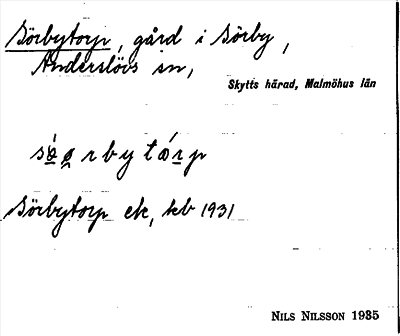 Sörbytorp, gård i Sörby,
Anderslövs sn,
Skytts härad, Malmöhus län
Sörbytorp ek, kb 1931
NILS NILSSON 1935